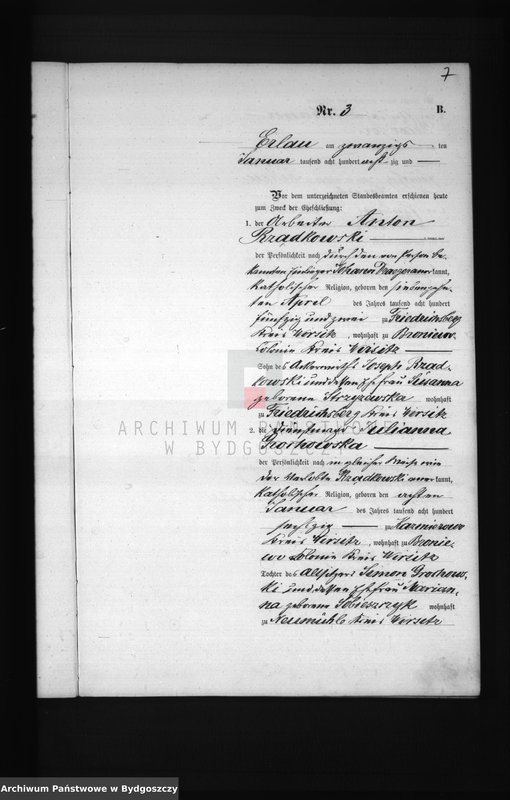 7
Nr. 3 B.
Erlau am zwanzigs ten
Januar tausend acht hundert acht zig und
Vor dem unterzeichneten Standesbeamten erschienen heute
zum Zweck der Eheschließung:
1. der Arbeiter Anton
Rzadkowski
der Persönlichkeit nach durch den von Person be-
kannten Johann kannt,
katholischer Religion, geboren den siebenzehn-
ten April des Jahres tausend acht hundert
fünfzig und zwei zu Friedrichsberg
Kreis Wirsitz, wohnhaft zu Broniewo
Colonie Kreis Wirsitz
Sohn des Ackerwirths Joseph Rzad-
kowski und dessen Ehefrau Susanna
geborene Strzyzewska wohnhaft
zu Friedrichsberg Kreis Wirsitz
2. die Dienstmagd Julianna
Grochowska
der Persönlichkeit nach in gleicher Weise wie
der Verlobte Rzadkowski anerkannt,
katholischer Religion, geboren den achten
Januar des Jahres tausend acht hundert
sechzig zu Kazmierowo
Kreis Wirsitz, wohnhaft zu Bronie-
wo Colonie Kreis Wirsitz
Tochter des Altsitzers Simon Grochows-
ki und dessen Ehefrau Marian-
na geborene Sobieszczyk wohnhaft
zu Neumühle Kreis Wirsitz
ARCHIWUM PAŃSTWOWE
W BYDGOSZCZY
Archiwum Państwowe w Bydgoszczy